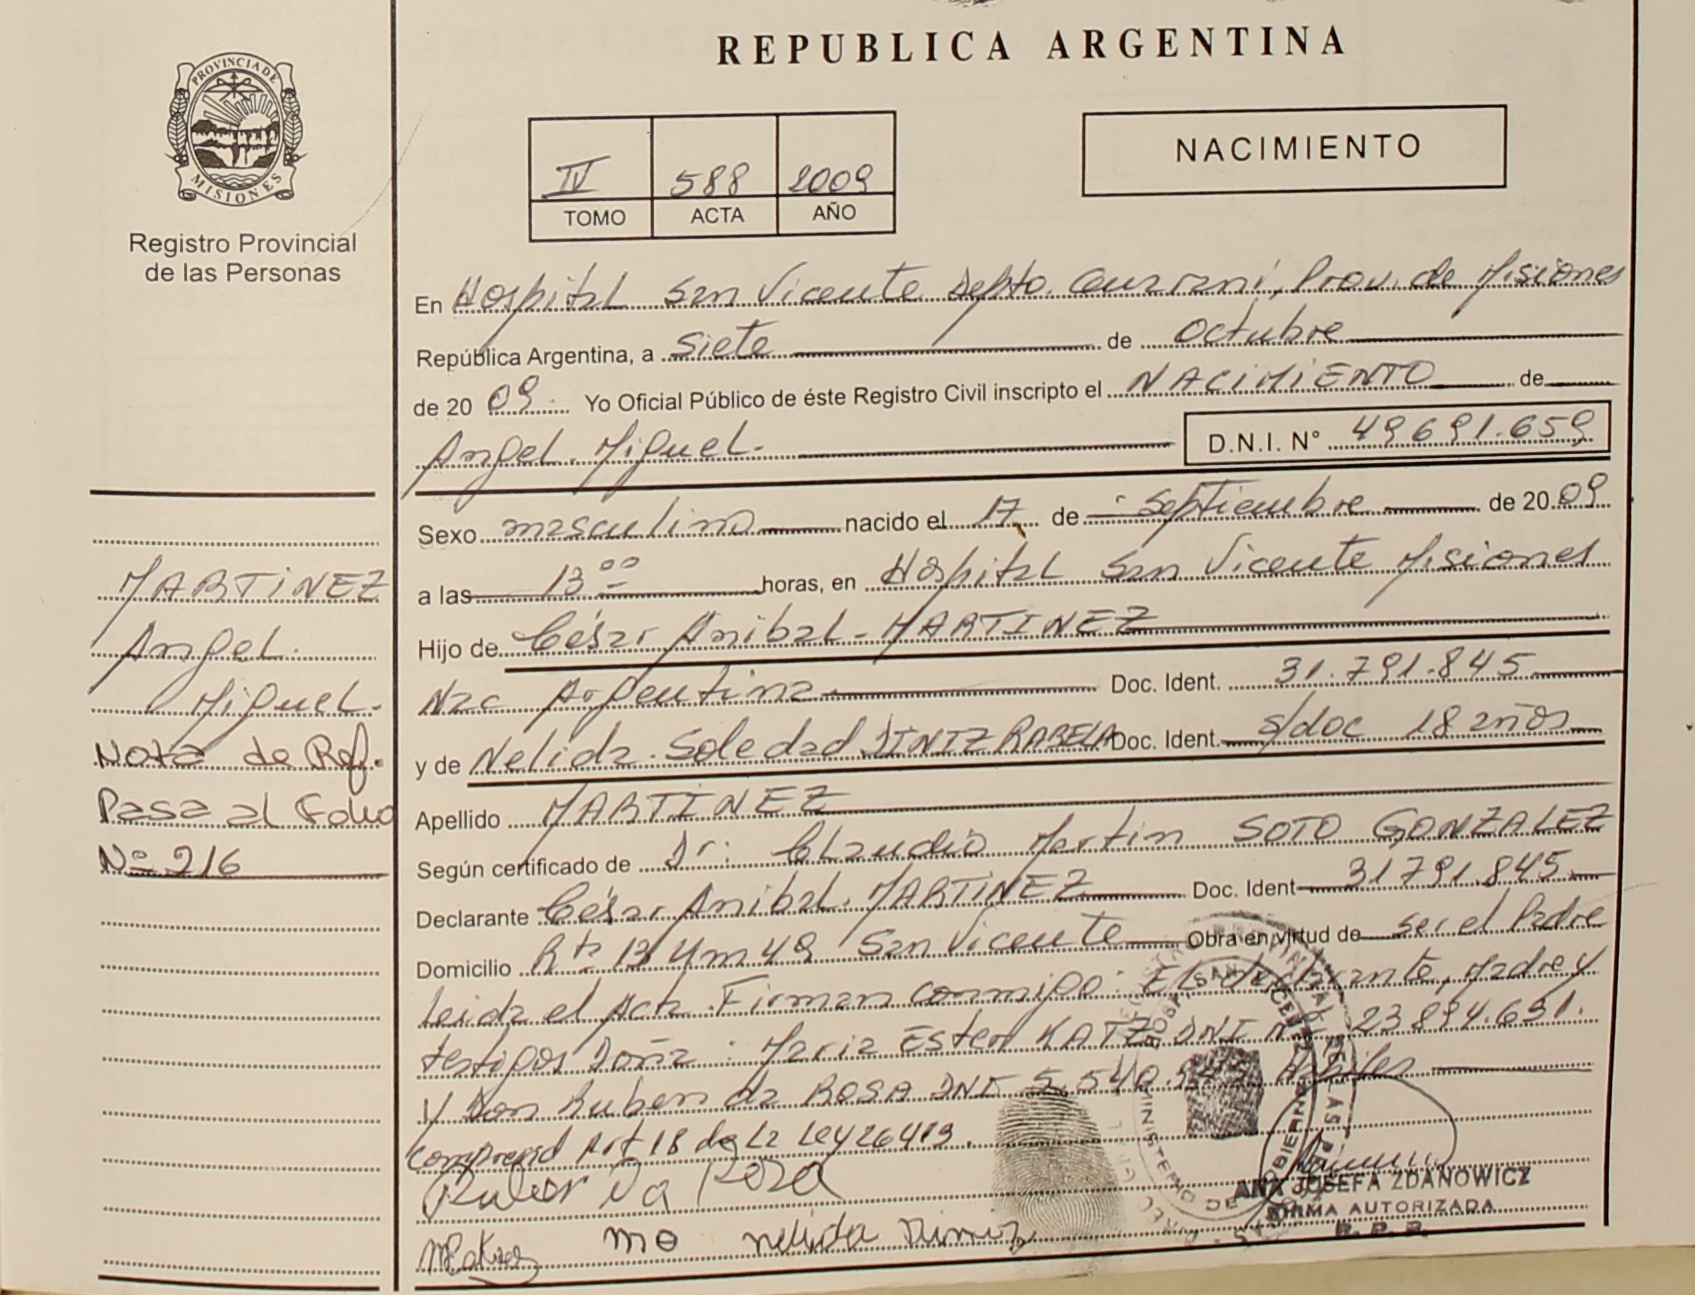 REPUBLICA ARGENTINA
PROVINCIA DE
MISIONES
Registro Provincial
de las Personas
IV 588 2009
TOMO ACTA AÑO
NACIMIENTO
En Hospital San Vicente Depto. Guarani, Prov. de Misiones
República Argentina, a siete de octubre
de 2009. Yo Oficial Público de éste Registro Civil inscripto el NACIMIENTO de
Angel Miguel. D.N.I. N° 49691.659
Sexo masculino nacido el 17 de septiembre de 2009
a las 13 00 horas, en Hospital San Vicente Misiones
Hijo de César Anibal MARTINEZ
Nac Argentina Doc. Ident. 31.791.845
y de Nelida Soledad Doc. Ident. s/doc 18 años
Apellido MARTINEZ
Según certificado de Dr: Claudio Martin SOTO GONZALEZ
Declarante César Anibal MARTINEZ Doc. Ident 31791.845
Domicilio Rta 13 Km 48 San Vicente Obra en virtud de ser el Padre
leida el Acta Firman conmigo: El declarante, Madre y
testigos Doña: Maria Ester KATZ DNI N°
y Don Ruben da ROSA DNI Habiles
Art 18 de La Ley 26413.
Ruben Da Rosa
nelida
MARTINEZ
Angel
Miguel.
Nota de Ref.
Pasa al Folio
Nº 216
ANA JOSEFA ZDANOWICZ
FIRMA AUTORIZADA
R. P. P.